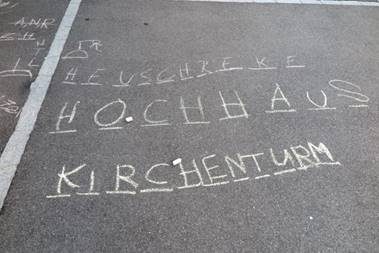 HEUSCHREKE
HOCHHAUS
KIRCHENTURM